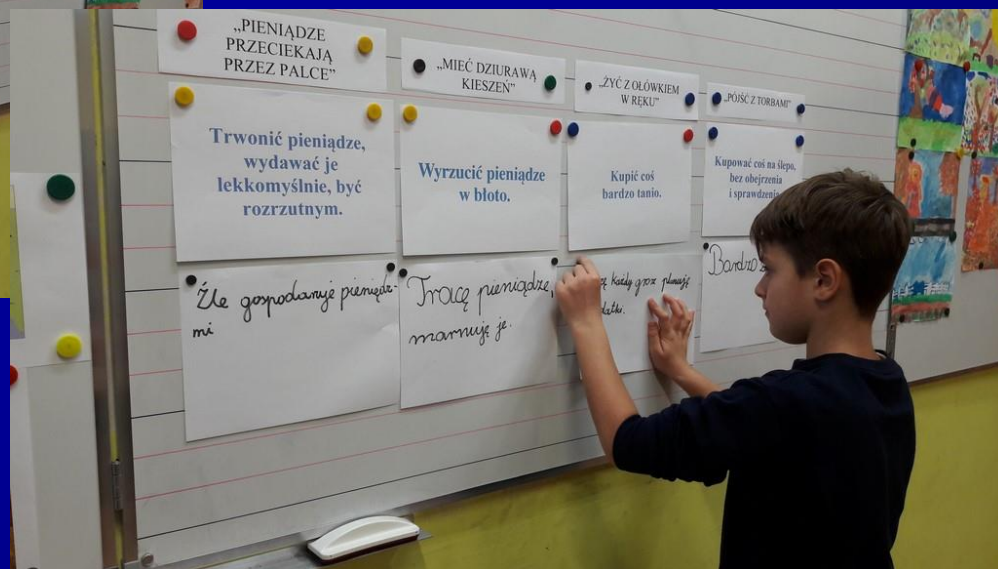 „PIENIĄDZE
PRZECIEKAJĄ
PRZEZ PALCE”
„MIEĆ DZIURAWĄ
KIESZEŃ”
„ŻYĆ Z OŁÓWKIEM
W RĘKU”
„PÓJŚĆ Z TORBAMI”
Trwonić pieniądze,
wydawać je
lekkomyślnie, być
rozrzutnym.
Wyrzucić pieniądze
w błoto.
Kupić coś
bardzo tanio.
Kupować coś na ślepo,
bez obejrzenia
i sprawdzenia
Źle gospodaruję pieniędz-
mi
Tracę pieniądze,
marnuję je.
każdy grosz planuję
Bardzo